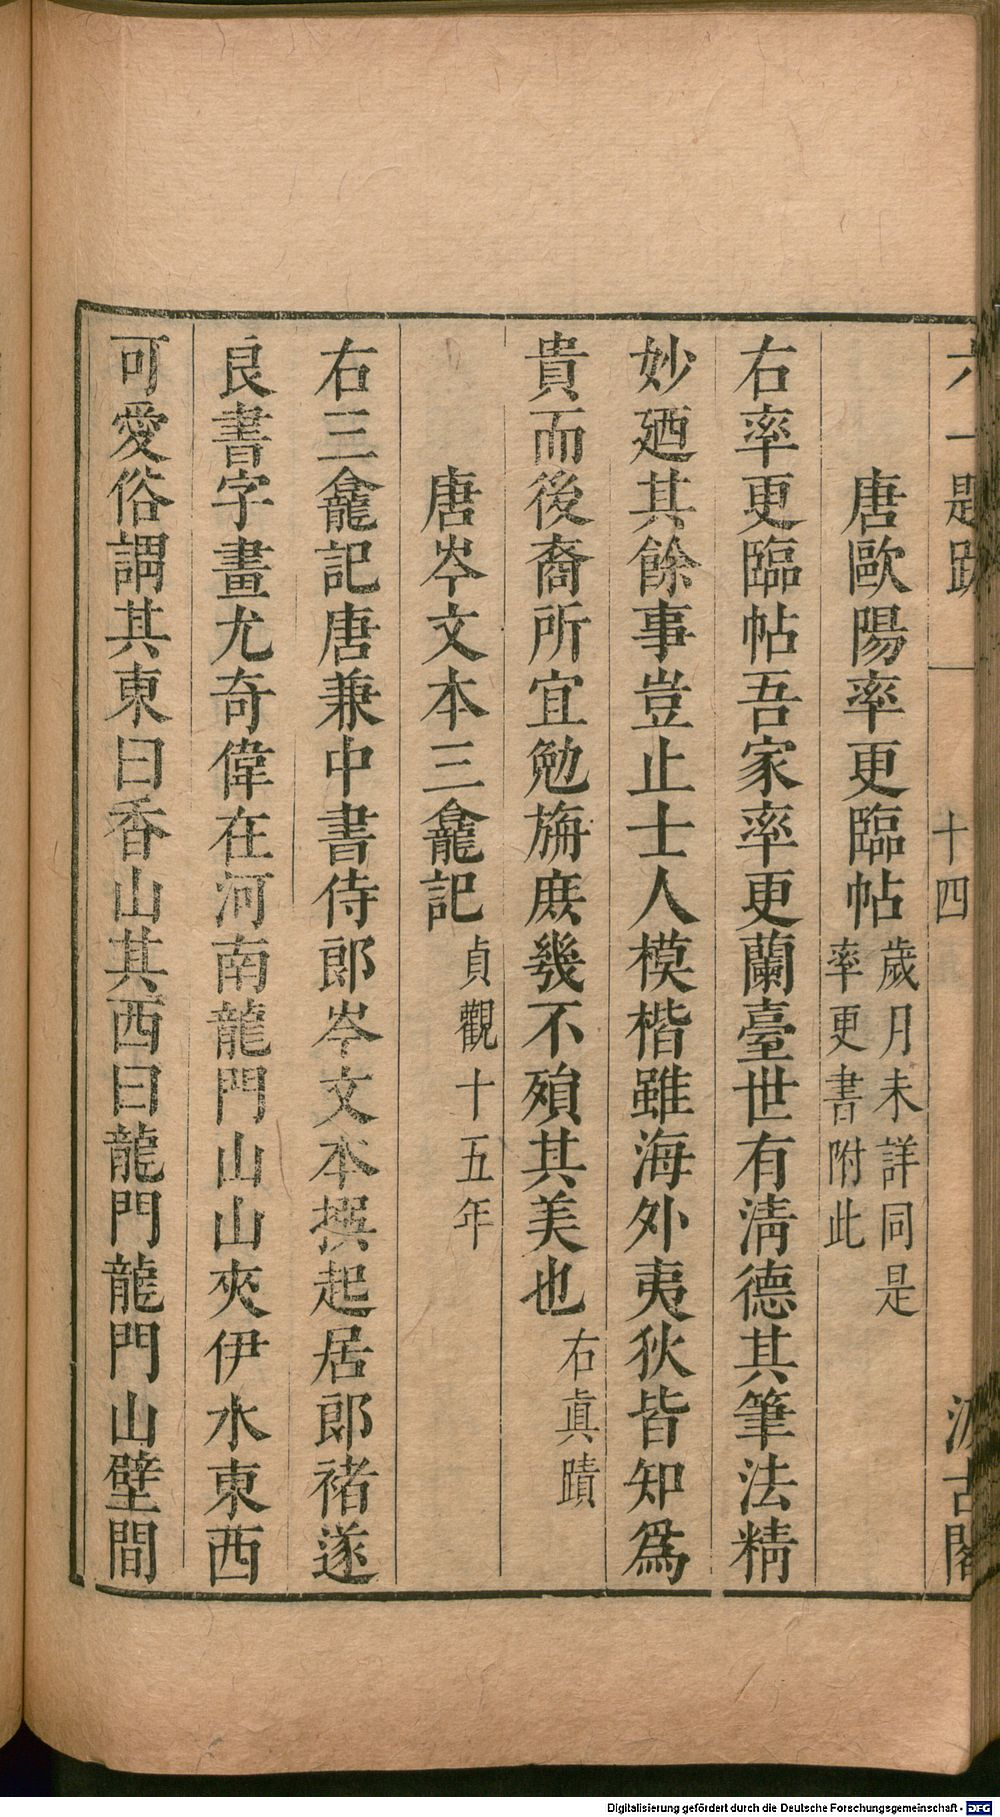 六一題跋 十四 汲古閣
唐歐陽率更臨帖 歲月未詳同是率更書附此
右率更臨帖吾家率更蘭臺世有淸德其筆法精
妙廼其餘事豈止士人模楷雖海外夷狄皆知爲
貴而後裔所宜勉旃庶幾不殞其美也 右眞蹟
唐岑文本三龕記 貞觀十五年
右三龕記唐兼中書侍郎岑文本撰起居郎褚遂
良書字畫尤奇偉在河南龍門山山夾伊水東西
可愛俗謂其東曰香山其西曰龍門龍門山壁間
Digitalisierung gefördert durch die Deutsche Forschungsgemeinschaft - DFG